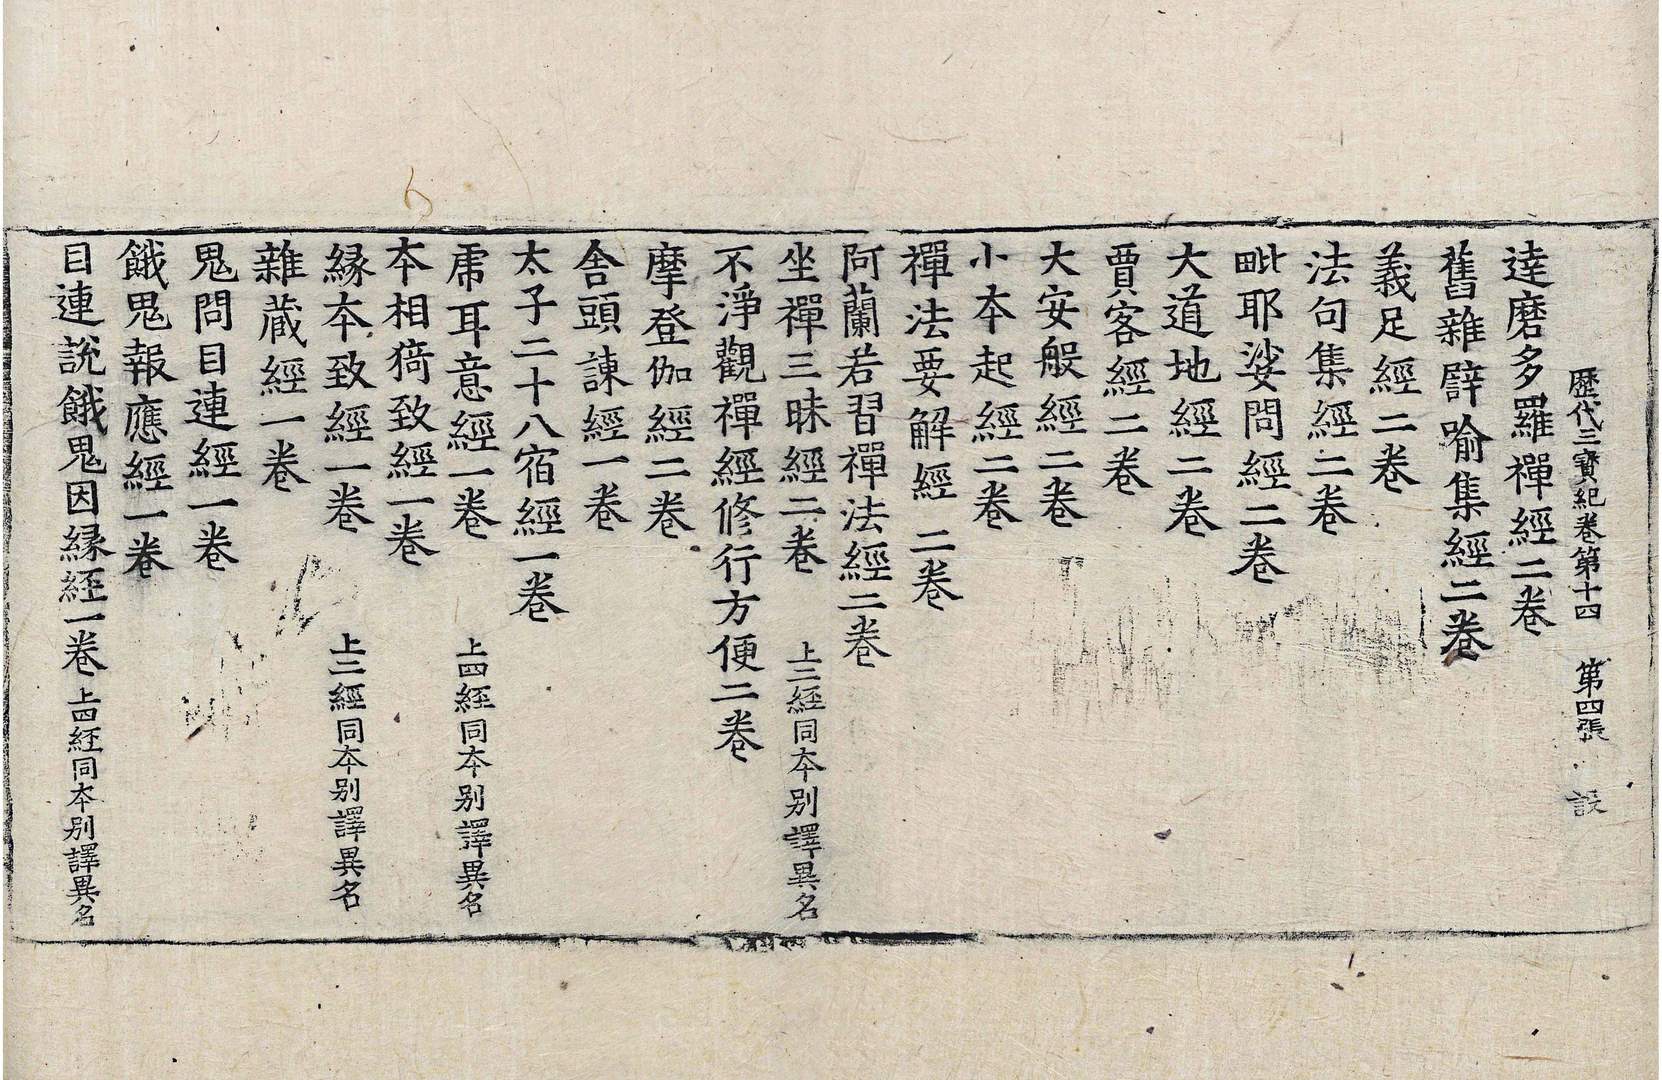 歷代三寶紀卷第十四 第四張 設
達磨多羅禪經二卷
舊雜譬喻集經二卷
義足經二卷
法句集經二卷
毗耶娑問經二卷
大道地經二卷
賈客經二卷
大安般經二卷
小本起經二卷
禪法要解經二卷
阿蘭若習禪法經二卷
坐禪三昧經二卷 上二經同本別譯異名
不淨觀禪經修行方便二卷
摩登伽經二卷
舍頭諫經一卷
太子二十八宿經一卷
虎耳意經一卷 上四經同本別譯異名
本相猗致經一卷
緣本致經一卷 上二經同本別譯異名
雜藏經一卷
鬼問目連經一卷
餓鬼報應經一卷
目連說餓鬼因緣經一卷 上四經同本別譯異名